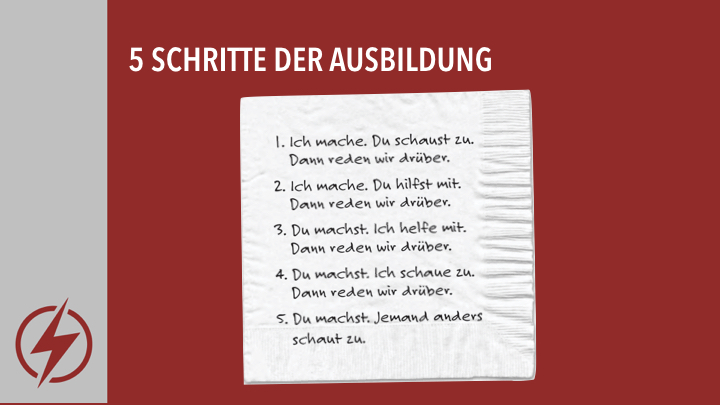 5 SCHRITTE DER AUSBILDUNG
1. Ich mache. Du schaust zu.
Dann reden wir drüber.
2. Ich mache. Du hilfst mit.
Dann reden wir drüber.
3. Du machst. Ich helfe mit.
Dann reden wir drüber.
4. Du machst. Ich schaue zu.
Dann reden wir drüber.
5. Du machst. Jemand anders
schaut zu.